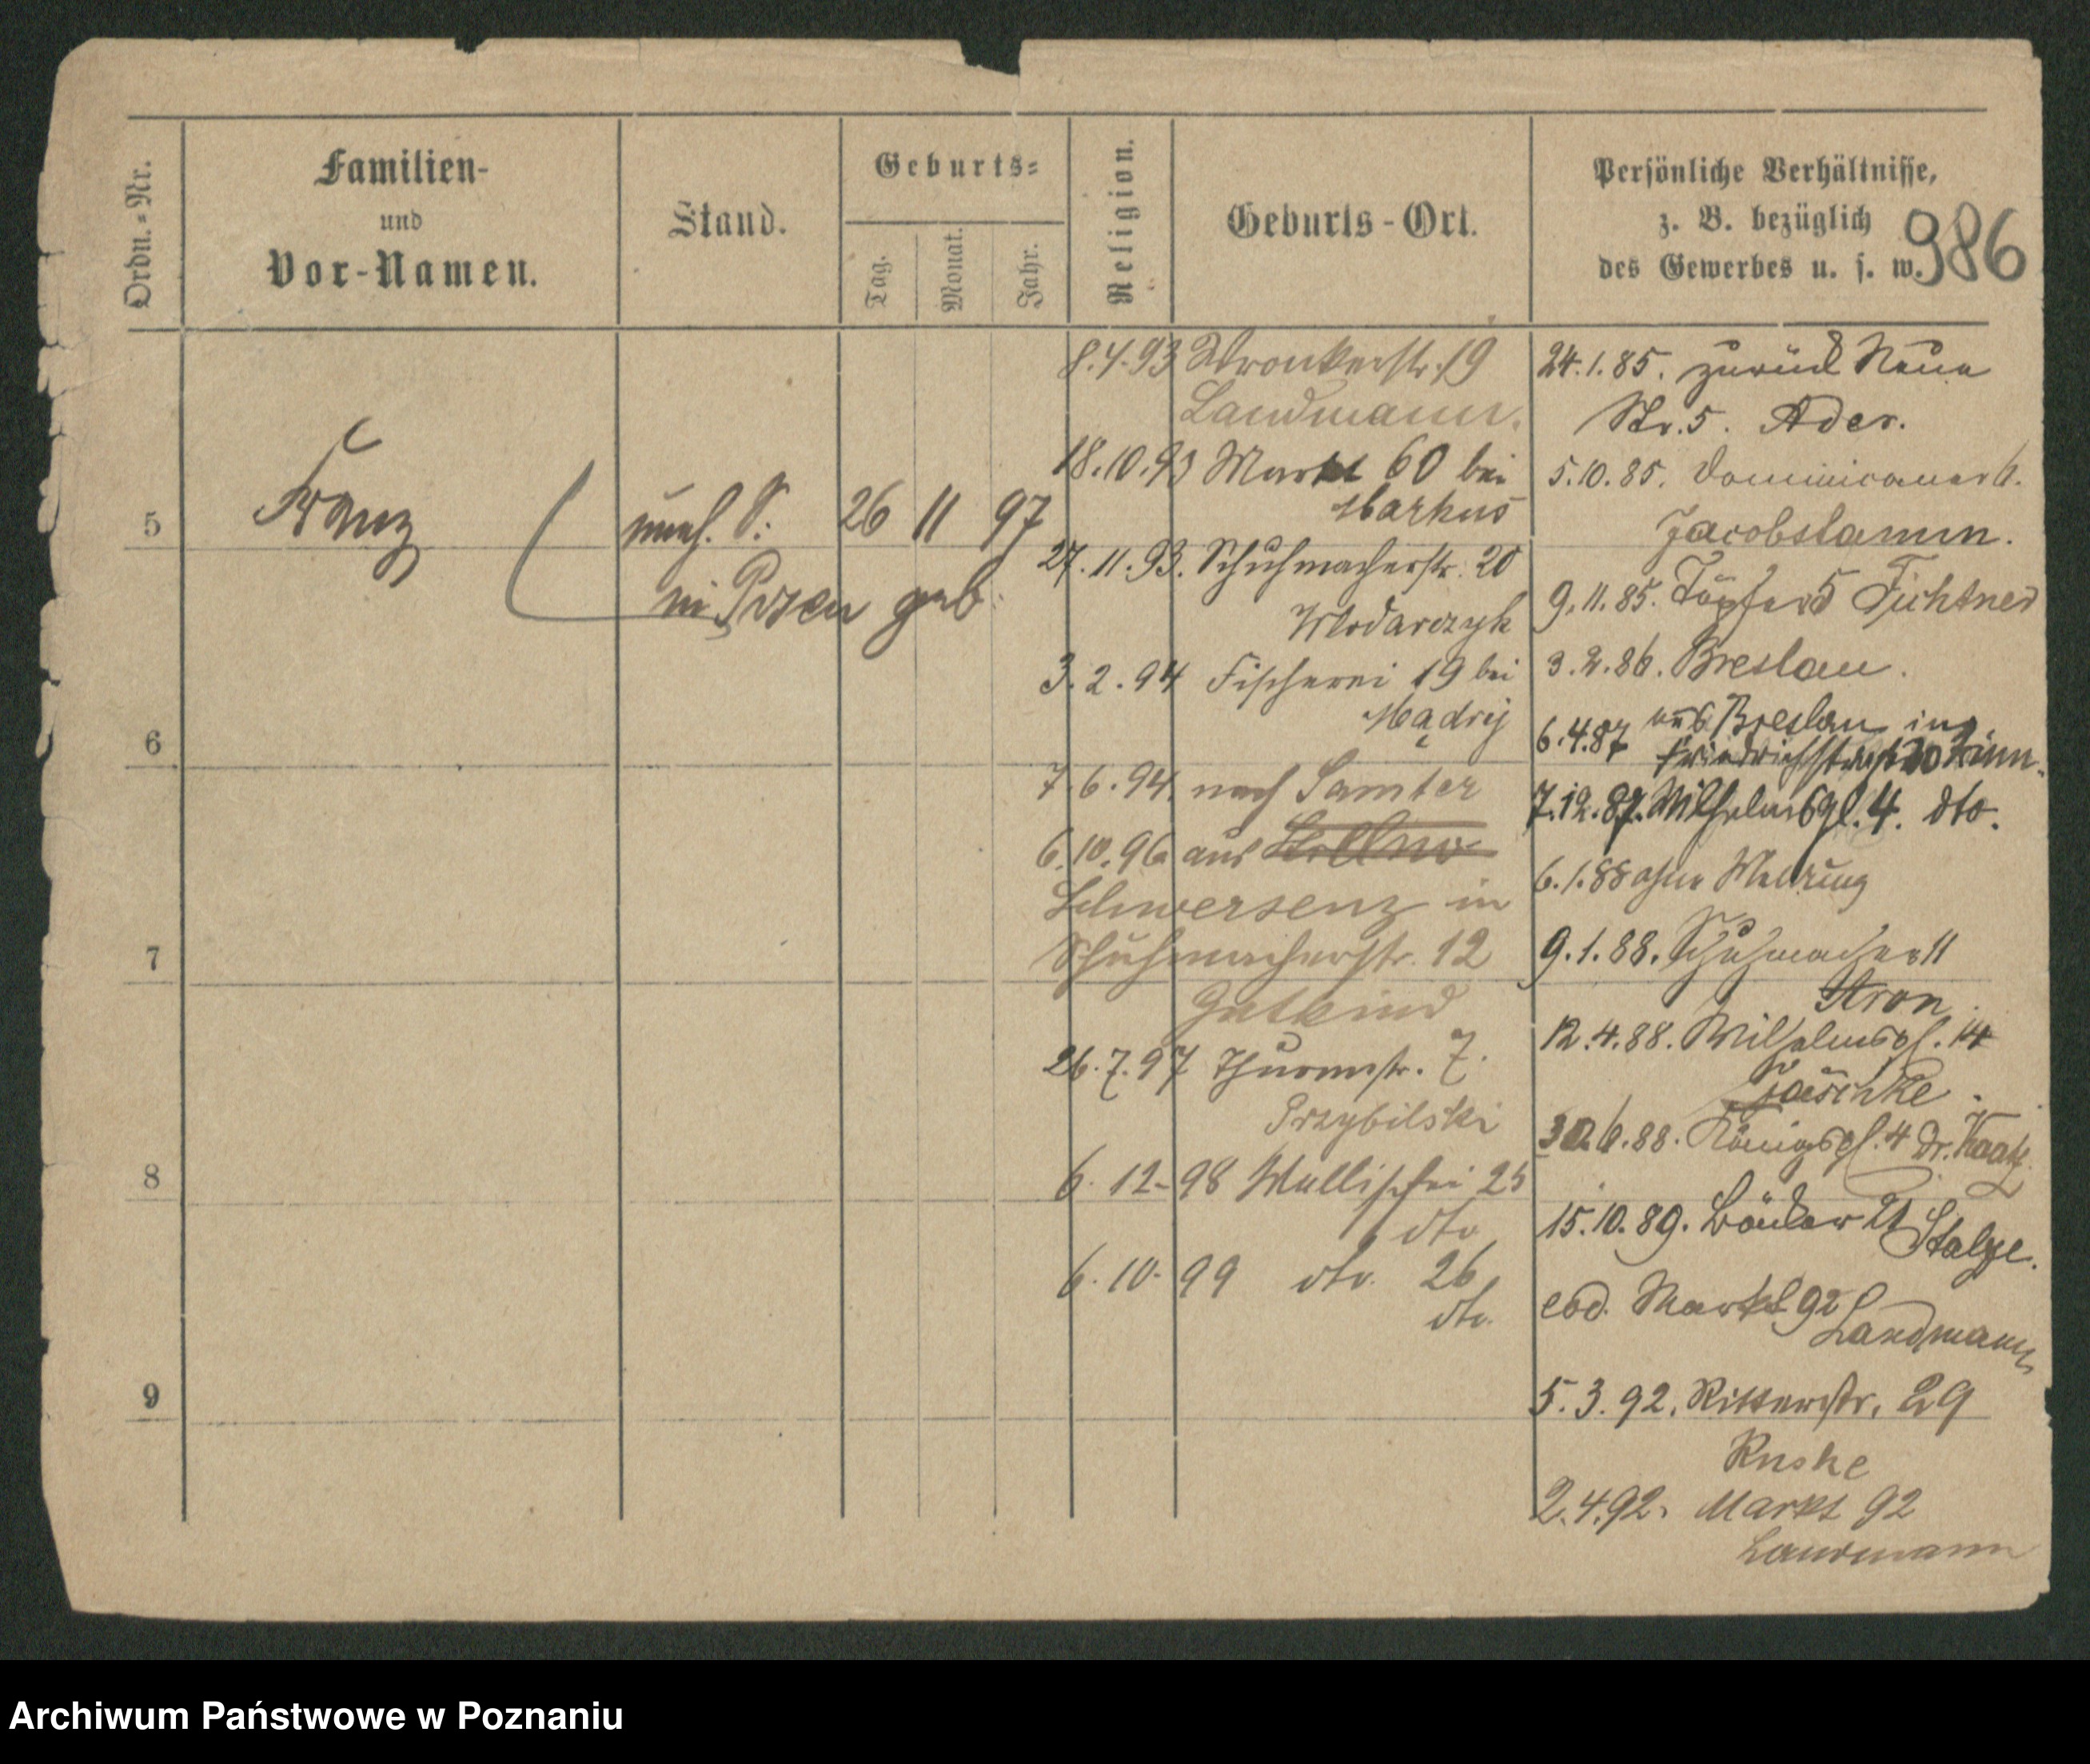 Ordn.-Nr.
Familien-
und
Vor-Namen.
Stand.
Geburts-
Tag.
Monat.
Jahr.
Religion.
Geburts-Ort.
Persönliche Verhältnisse,
z. B. bezüglich
des Gewerbes u. s. w.
986
5
Franz
uneh. S.
26 11 97
in Posen geb.
6
7
8
9
8.4.93 Wronkerstr. 19
Landmann.
18.10.93 Markt 60 bei
Markus
27.11.93. Schuhmacherstr. 20
Wlodarczyk
3.2.94 Fischerei 19 bei
Mądry
7.6.94. nach Samter
6.10.96 aus
Schwersenz in
Schuhmacherstr. 12
Gutkind
26.7.97 Thurmstr. 7.
Przybilski
6.12-98 Wallischei 25
dto
6.10-99 dto. 26
dto.
24.1.85. zurück Neue
Str. 5. Ader.
5.10.85. Dominicaner 6.
Jacobstamm.
9.11.85. Töpfer 5 Fichtner
3.2.86. Breslau.
6.4.87 aus Breslau in
Friedrichstraße 30
7.12.87. Wilhelmspl. 4. dto.
6.1.88 ohne Meldung
9.1.88. Schuhmacher 11
Aron.
12.4.88. Wilhelmspl. 14
Jaeschke.
30.6.88. Königspl. 4 Dr. Kaatz.
15.10.89. Bäcker 21
eod. Markt 92
Landmann
5.3.92. Ritterstr. 29
Ruske
2.4.92. Markt 92
Landmann
Archiwum Państwowe w Poznaniu